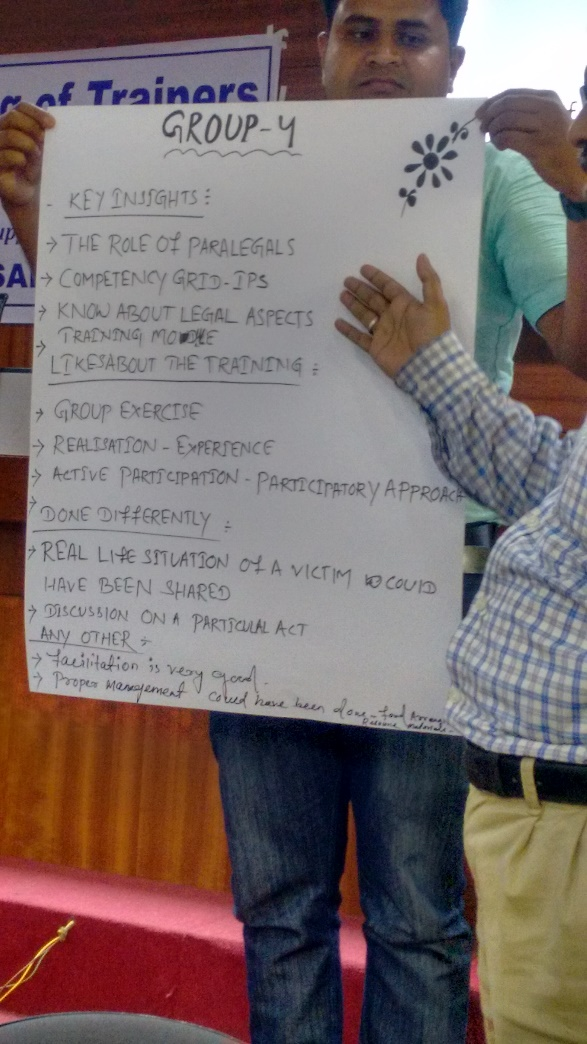 g of Trainers
GROUP-4
- KEY INSIGHTS :
→ THE ROLE OF PARALEGALS
→ COMPETENCY GRID-IPS
→ KNOW ABOUT LEGAL ASPECTS
→ TRAINING
LIKES ABOUT THE TRAINING :
→ GROUP EXERCISE
→ REALISATION - EXPERIENCE
→ ACTIVE PARTICIPATION - PARTICIPATORY APPROACH
→
DONE DIFFERENTLY :
→ REAL LIFE SITUATION OF A VICTIM COULD
HAVE BEEN SHARED
→ DISCUSSION ON A PARTICULAL ACT
ANY OTHER :-
→ Facilitation is very good.
→ Proper Management could have been done - Food